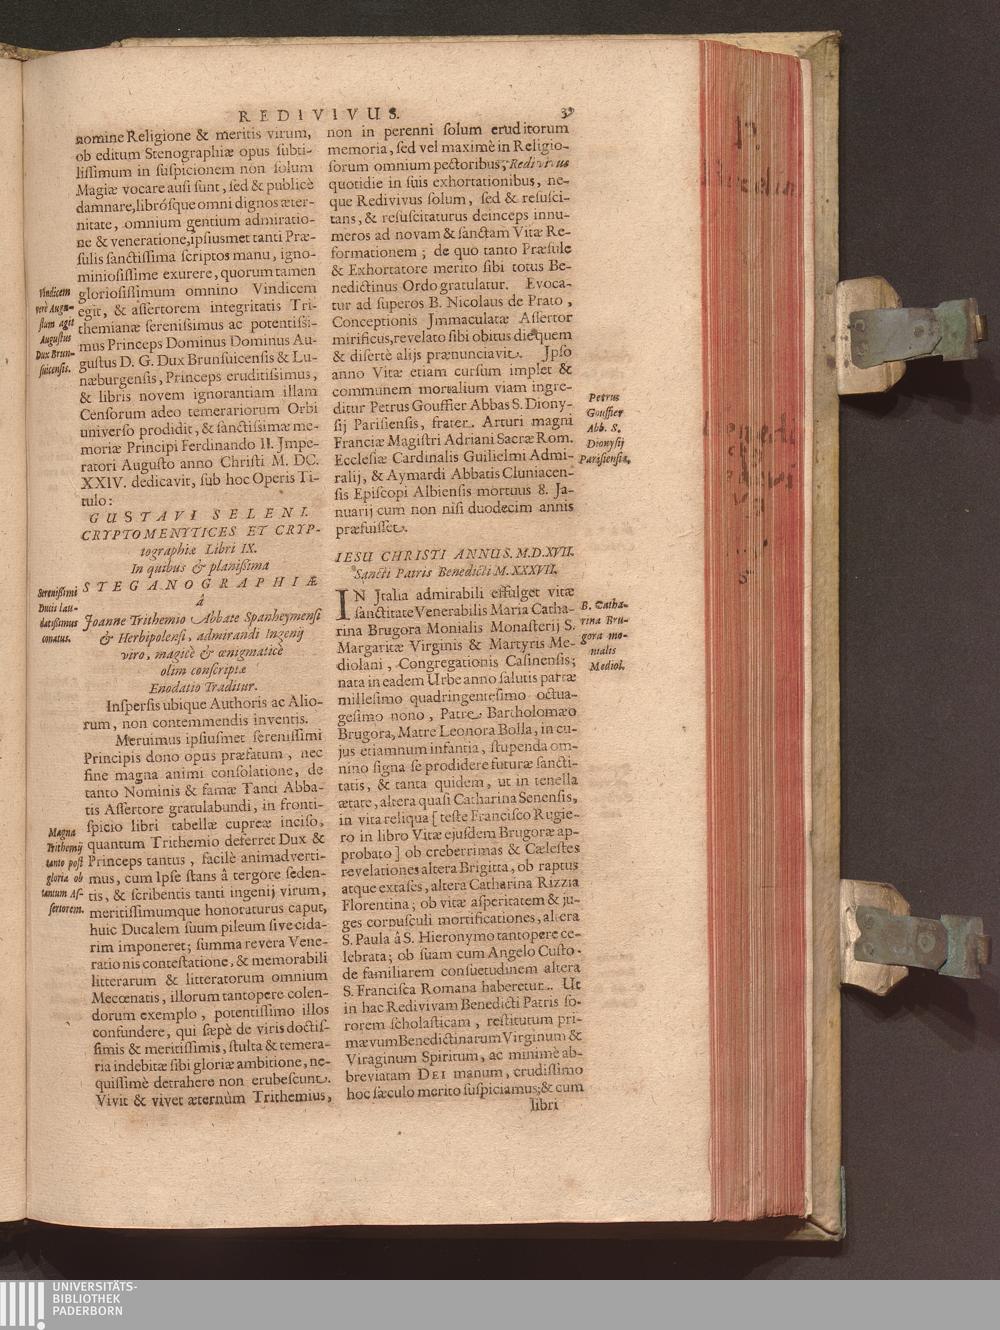 REDIVIVUS.
39
nomine Religione & meritis virum,
ob editum Stenographiæ opus subti-
lissimum in suspicionem non solum
Magiæ vocare ausi sunt, sed & publicè
damnare, librósque omni dignos æter-
nitate, omnium gentium admiratio-
ne & veneratione, ipsiusmet tanti Præ-
sulis sanctissima scriptos manu, igno-
miniosissime exurere, quorum tamen
gloriosissimum omnino Vindicem
egit, & assertorem integritatis Tri-
themianæ serenissimus ac potentissi-
mus Princeps Dominus Dominus Au-
gustus D. G. Dux Brunsuicensis & Lu-
næburgensis, Princeps eruditissimus,
& libris novem ignorantiam illam
Censorum adeo temerariorum Orbi
universo prodidit, & sanctissimæ me-
moriæ Principi Ferdinando II. Jmpe-
ratori Augusto anno Christi M. DC.
XXIV. dedicavit, sub hoc Operis Ti-
tulo:
GUSTAVI SELENI.
CRYPTOMENYTICES ET CRYP-
tographiæ Libri IX.
In quibus & planissima
STEGANOGRAPHIÆ
â
Joanne Trithemio Abbate Spanheymensi
& Herbipolensi, admirandi Ingenij
viro, magicè & œnigmaticè
olim conscriptæ
Enodatio Traditur.
Inspersis ubique Authoris ac Alio-
rum, non contemmendis inventis.
Meruimus ipsiusmet serenissimi
Principis dono opus præfatum, nec
sine magna animi consolatione, de
tanto Nominis & famæ Tanti Abba-
tis Assertore gratulabundi, in fronti-
spicio libri tabellæ cupreæ inciso,
quantum Trithemio deferret Dux &
Princeps tantus, facilè animadverti-
mus, cum Ipse stans â tergore seden-
tis, & scribentis tanti ingenij virum,
meritissimumque honoraturus caput,
huic Ducalem suum pileum sive cida-
rim imponeret; summa revera Vene-
rationis contestatione, & memorabili
litterarum & litteratorum omnium
Mecœnatis, illorum tantopere colen-
dorum exemplo, potentissimo illos
confundere, qui sæpè de viris doctis-
simis & meritissimis, stulta & temera-
ria indebitæ sibi gloriæ ambitione, ne-
quissimè detrahere non erubescunt.
Vivit & vivet æternùm Trithemius,
Vindicem
verè Augu-
stum agit
Augustus
Dux Brun-
suicensis.
Serenissimi
Ducis lau-
datissimus
conatus.
Magna
Trithemij
tanto post
gloria ob
tantum As-
sertorem.
non in perenni solum eruditorum
memoria, sed vel maximè in Religio-
sorum omnium pectoribus; Redivivus
quotidie in suis exhortationibus, ne-
que Redivivus solum, sed & resusci-
tans, & resuscitaturus deinceps innu-
meros ad novam & sanctam Vitæ Re-
formationem; de quo tanto Præsule
& Exhortatore merito sibi totus Be-
nedictinus Ordo gratulatur. Evoca-
tur ad superos B. Nicolaus de Prato,
Conceptionis Jmmaculatæ Assertor
mirificus, revelato sibi obitus die quem
& disertè alijs prænunciavit. Jpso
anno Vitæ etiam cursum implet &
communem mortalium viam ingre-
ditur Petrus Gouffier Abbas S. Diony-
sij Parisiensis, frater Arturi magni
Franciæ Magistri Adriani Sacræ Rom.
Ecclesiæ Cardinalis Guilielmi Admi-
ralij, & Aymardi Abbatis Cluniacen-
sis Episcopi Albiensis mortuus 8. Ja-
nuarij cum non nisi duodecim annis
præfuisset.
IESU CHRISTI ANNUS. M.D.XVII.
Sancti Patris Benedicti M.XXXVII.
IN Jtalia admirabili effulget vitæ
sanctitate Venerabilis Maria Catha-
rina Brugora Monialis Monasterij S.
Margaritæ Virginis & Martyris Me-
diolani, Congregationis Casinensis;
nata in eadem Urbe anno salutis partæ
millesimo quadringentesimo octua-
gesimo nono, Patre Bartholomæo
Brugora, Matre Leonora Bolla, in cu-
jus etiamnum infantia, stupenda om-
nino signa se prodidere futuræ sancti-
tatis, & tanta quidem, ut in tenella
ætate, altera quasi Catharina Senensis,
in vita reliqua [ teste Francisco Rugie-
ro in libro Vitæ ejusdem Brugoræ ap-
probato ] ob creberrimas & Cælestes
revelationes altera Brigitta, ob raptus
atque extases, altera Catharina Rizzia
Florentina; ob vitæ asperitatem & ju-
ges corpusculi mortificationes, altera
S. Paula â S. Hieronymo tantopere ce-
lebrata; ob suam cum Angelo Custo-
de familiarem consuetudinem altera
S. Francisca Romana haberetur. Ut
in hac Redivivam Benedicti Patris so-
rorem scholasticam, restitutum pri-
mævum Benedictinarum Virginum &
Viraginum Spiritum, ac minimè ab-
breviatam DEI manum, crudissimo
hoc sæculo merito suspiciamus; & cum
libri
Petrus
Gouffier
Abb. S.
Dionysij
Parisiensis.
B. Catha-
rina Bru-
gora mo-
nialis
Mediol.
UNIVERSITÄTS-
BIBLIOTHEK
PADERBORN